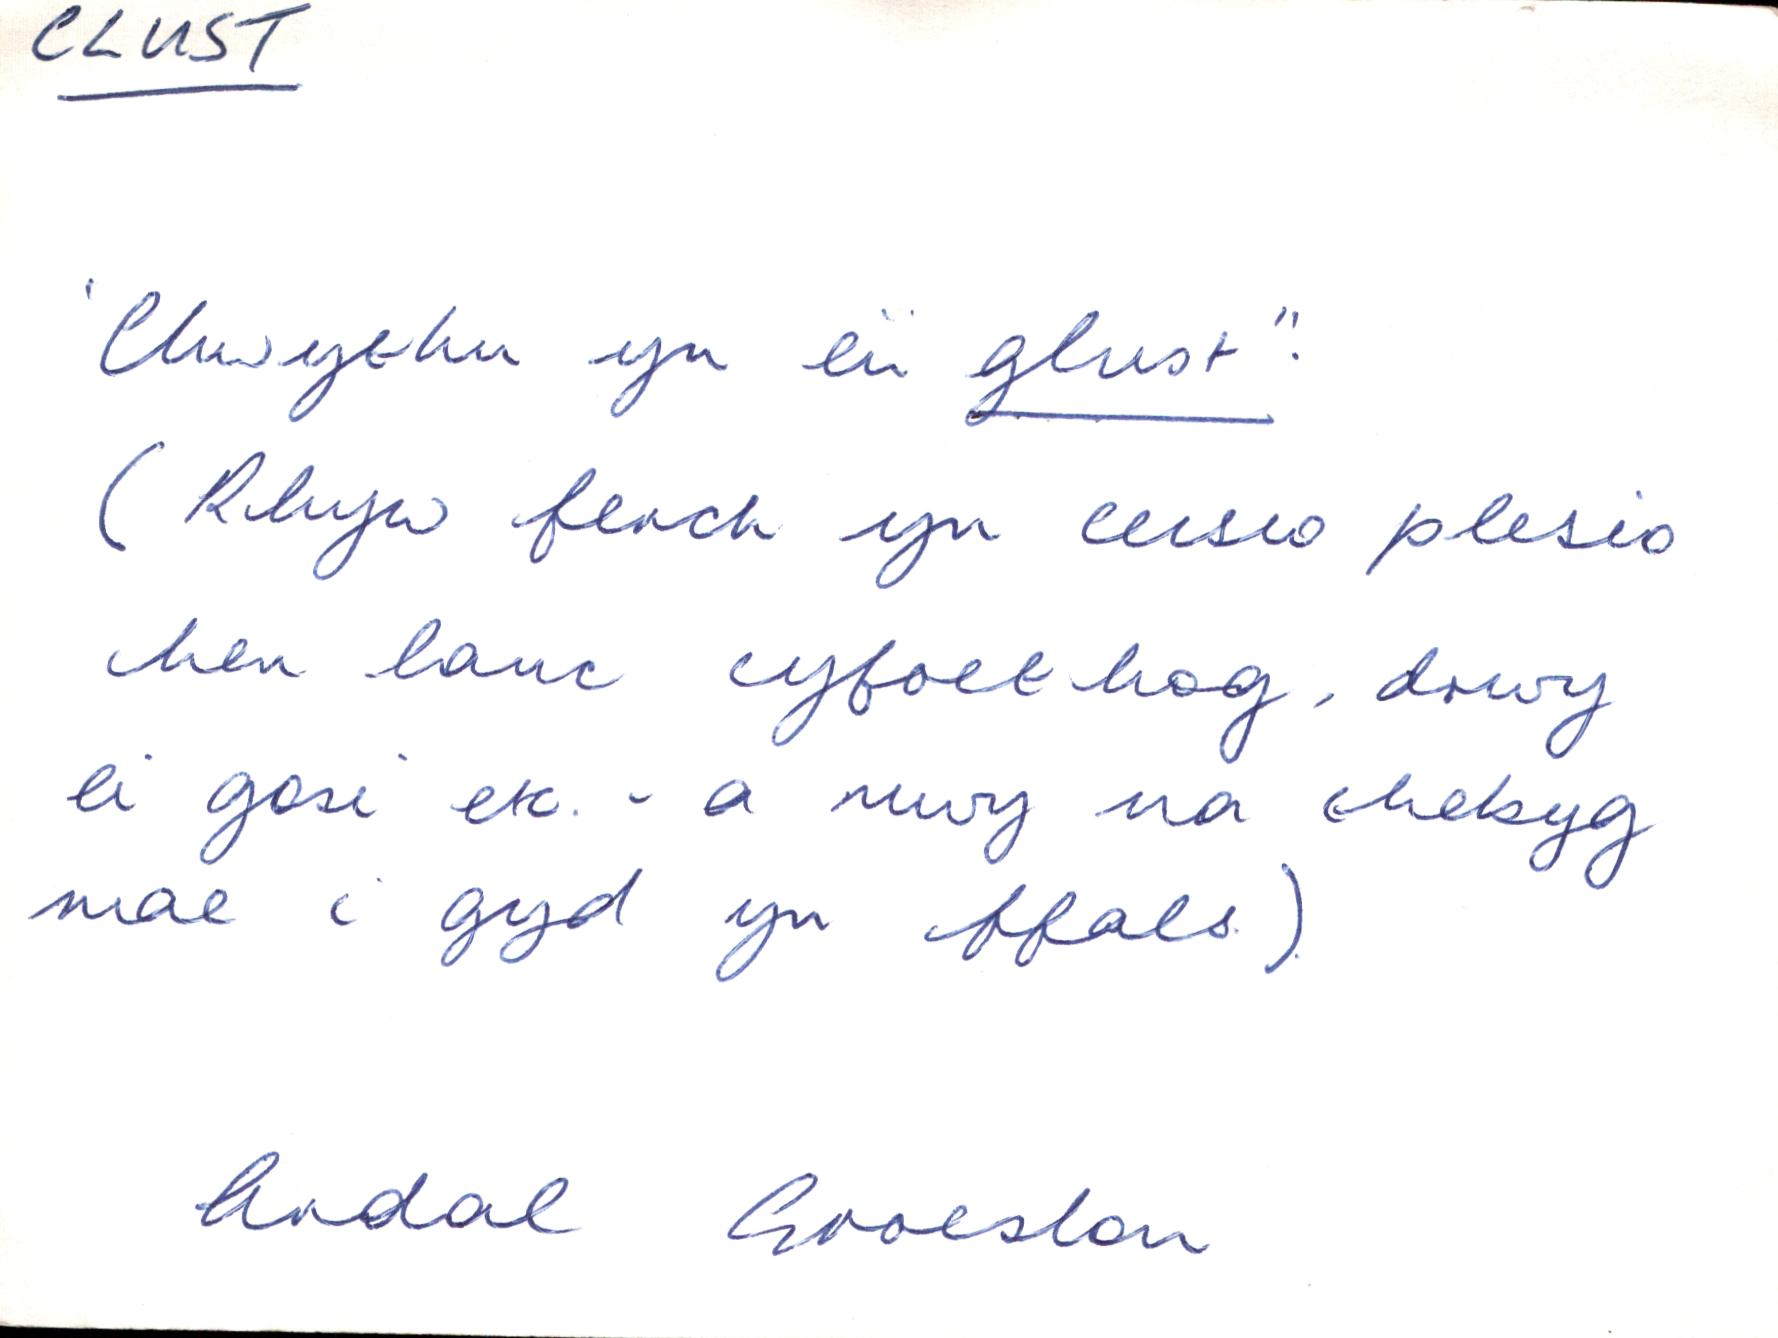 CLUST
"Chwythu yn ei glust".
(Rhyw ferch yn ceisio plesio
hen lanc cyfoethog, drwy
ei gosi etc. - a mwy na thebyg
mae i gyd yn ffals.)
Ardal Groeslon